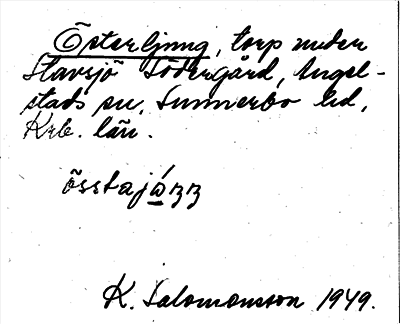 Österljung, torp under
Stavsjö Södergård, Angel-
stads sn, Sunnerbo hd,
Krb. län.
össtajåzz
K. Salomonsson 1949.